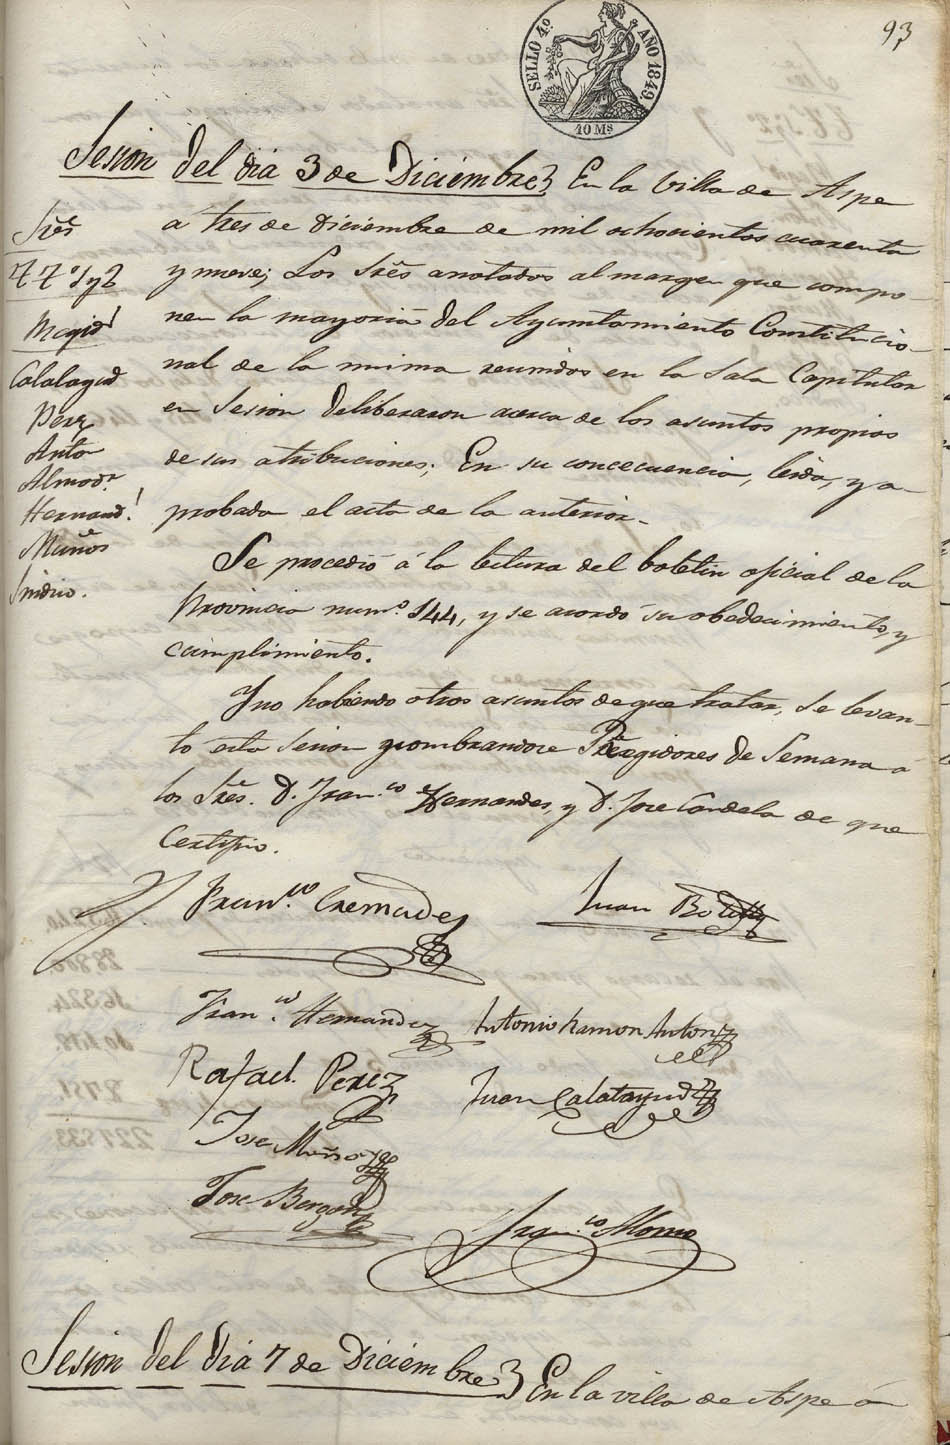 93
SELLO 4.º AÑO 1849.
40 Ms
Sesion del dia 3 de Diciembre } En la Villa de Aspe
a tres de Diciembre de mil ochocientos cuarenta
y nueve; Los Sres anotados al margen que compo-
nen la mayoria del Ayuntamiento Constitucio-
nal de la misma reunidos en la Sala Capitular
en Sesion deliberaron acerca de los asuntos propios
de sus atribuciones; En su concecuencia, leida, y a-
probada el acta de la anterior.
Sres
1º y 2
Regid.
Calatayud
Perez
Anton
Almod.r
Hernand.
Muños
Sindico.
Se procedió á la lectura del boletin oficial de la
Provincia num.º 144, y se acordó su obedecimiento, y
cumplimiento.
Y no habiendo otros asuntos de que tratar, se levan-
to esta sesion nombrandose Regidores de Semana a
los Sres. D. Fran.co Hernandes, y D. Jose Candela de que
Certifico.
Fran.co Cremades
Juan Botella
Fran.co Hernandez
Antonio Ramon Anton
Rafael Perez
Juan Calatayud
Jose Muños
Jose Berger
Fran.co Alonso
Sesion del dia 7 de Diciembre } En la villa de Aspe á